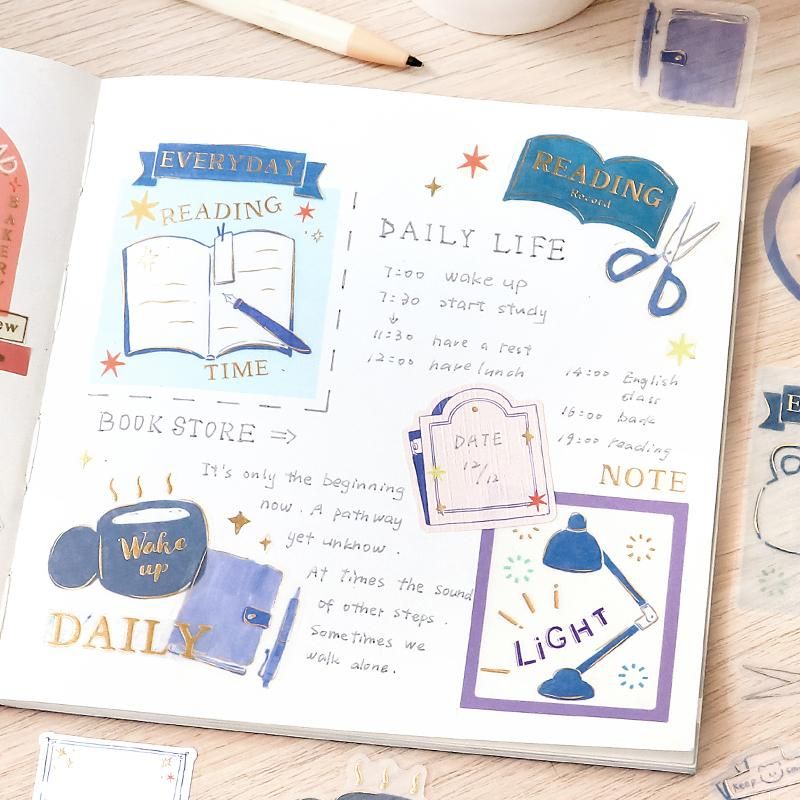 EVERYDAY
READING
TIME
READING
Record
DAILY LIFE
7:00 wake up
7:30 start study
11:30 have a rest
12:00 have lunch
14:00 English
class
16:00 back
19:00 reading
BOOK STORE ⇒
It's only the beginning
now. A pathway
yet unknow.
At times the sound
of other steps.
Sometimes we
walk alone.
DATE
12/12
Wake
up
DAILY
NOTE
LiGHT
BAKERY
Keep